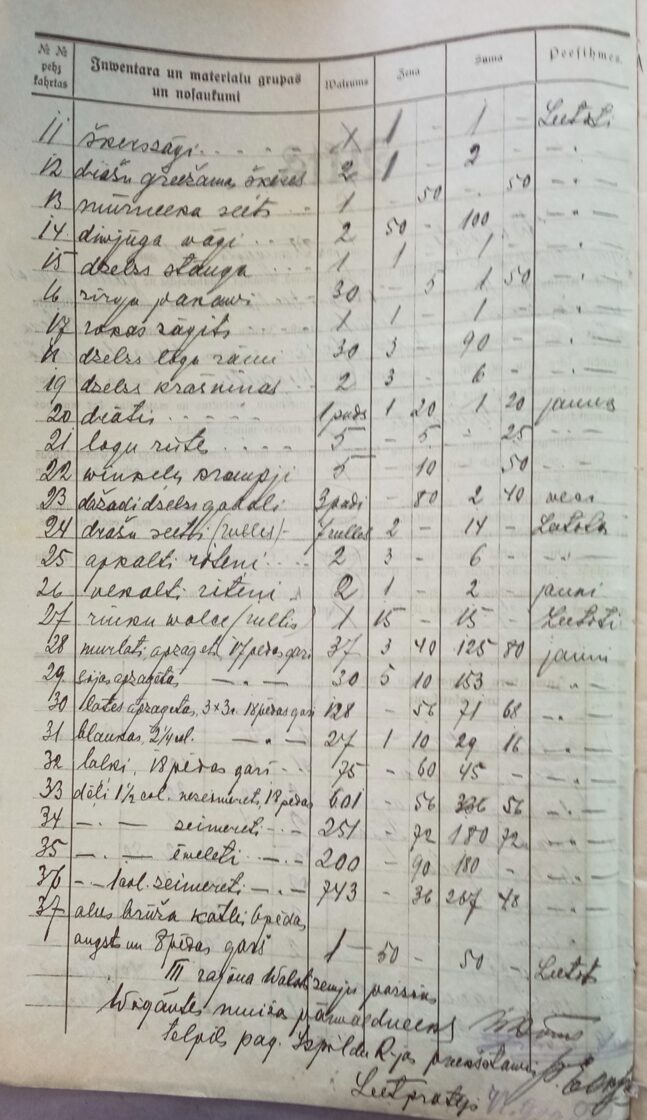 № № pehz kahrtas Inwentara un materialu grupas un nosaukumi Wairums Zena Suma Peesihmes
11 škehrszāģi 1 1 - 1 - Leetoti
12 drāšu greežamas šķeres 2 1 - 2 - - " -
13 mūrneeka seets 1 - 50 - 50 - " -
14 diwjūga wāģi 2 50 - 100 - - " -
15 dzelzs stanga 1 1 - 1 - - " -
16 zirga pakawi 30 - 5 1 50 - " -
17 rokas zāģits 1 1 - 1 - - " -
18 dzelzs logu rāmi 30 3 - 90 - - " -
19 dzelzs krāsniņas 2 3 - 6 - - " -
20 drātis 1 puds 1 20 1 20 jaunas
21 logu rutes 5 - 5 - 25 - " -
22 winkeļu krampji 5 - 10 - 50 - " -
23 dažadi dzelzs gabali 3 pudi - 80 2 40 veci
24 drāšu seeti (rulles) 7 rulles 2 - 14 - Leetota
25 apkalti riteņi 2 3 - 6 - - " -
26 nekalti riteņi 2 1 - 2 - jauni
27 rinku walce (rullis) 1 15 - 15 - Leetoti
28 murlati, apzageti, 17 pēdas gari 37 3 40 125 80 jauni
29 sijas apzagetas - " - 30 5 10 153 - - " -
30 lates apzagetas, 3×3", 18 pēdas gari 128 - 56 71 68 - " -
31 blankas, 2 1/4 col. - " - 27 1 10 29 16 - " -
32 balki, 18 pēdas gari 75 - 60 45 - - " -
33 dēļi 1 1/2 col. neseimereti, 18 pēdas 601 - 56 336 56 - " -
34 - " - seimereti - " - 251 - 72 180 72 - " -
35 - " - ēweleti - " - 200 - 90 180 - - " -
36 - " - 1 col. seimereti - " - 743 - 36 267 48 - " -
37 alus brūža katls 6 pēdas
augsts un 8 pēdas garš 1 50 - 50 - Leetots
III rajona Walsts zemju
muiža pārwaldneeks
pag. Izpildu
Leetwedis